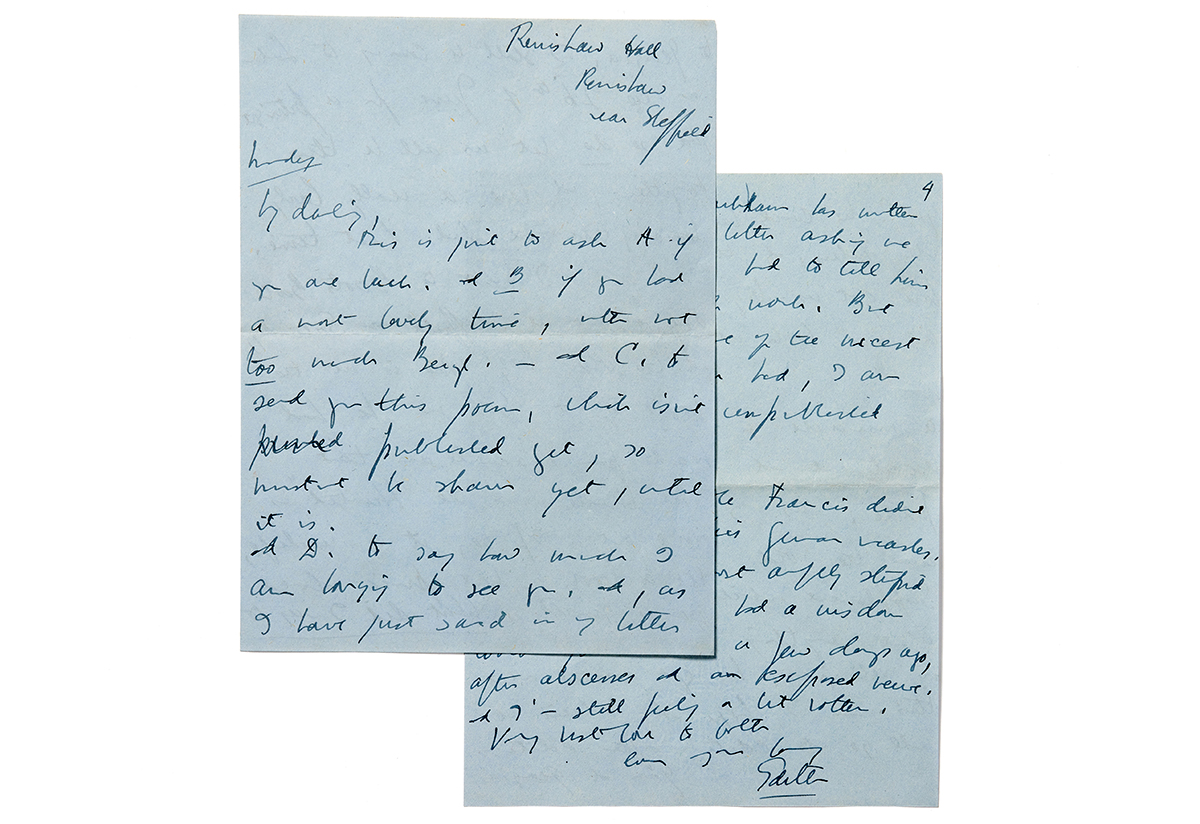 Renishaw Hall
Renishaw
near Sheffield
My darling,
This is just to ask A. if
you are back. and B if you had
a most lovely time, with not
too much Beryl. — and C. to
send you this poem, which isn't
printed published yet, so
mustnt be shown yet, until
it is.
and D. to say how much I
am longing to see you. and, as
I have just said in my letter
4
has written
letter asking me
bed to tell him
work. But
of the nicest
bed, I am
unpublished
Francis didnt
German
most awfully stupid
had a wisdom
a few days ago,
after abscesses and an exposed nerve.
and I'm still feeling a bit rotten.
Very best love to both
Edith